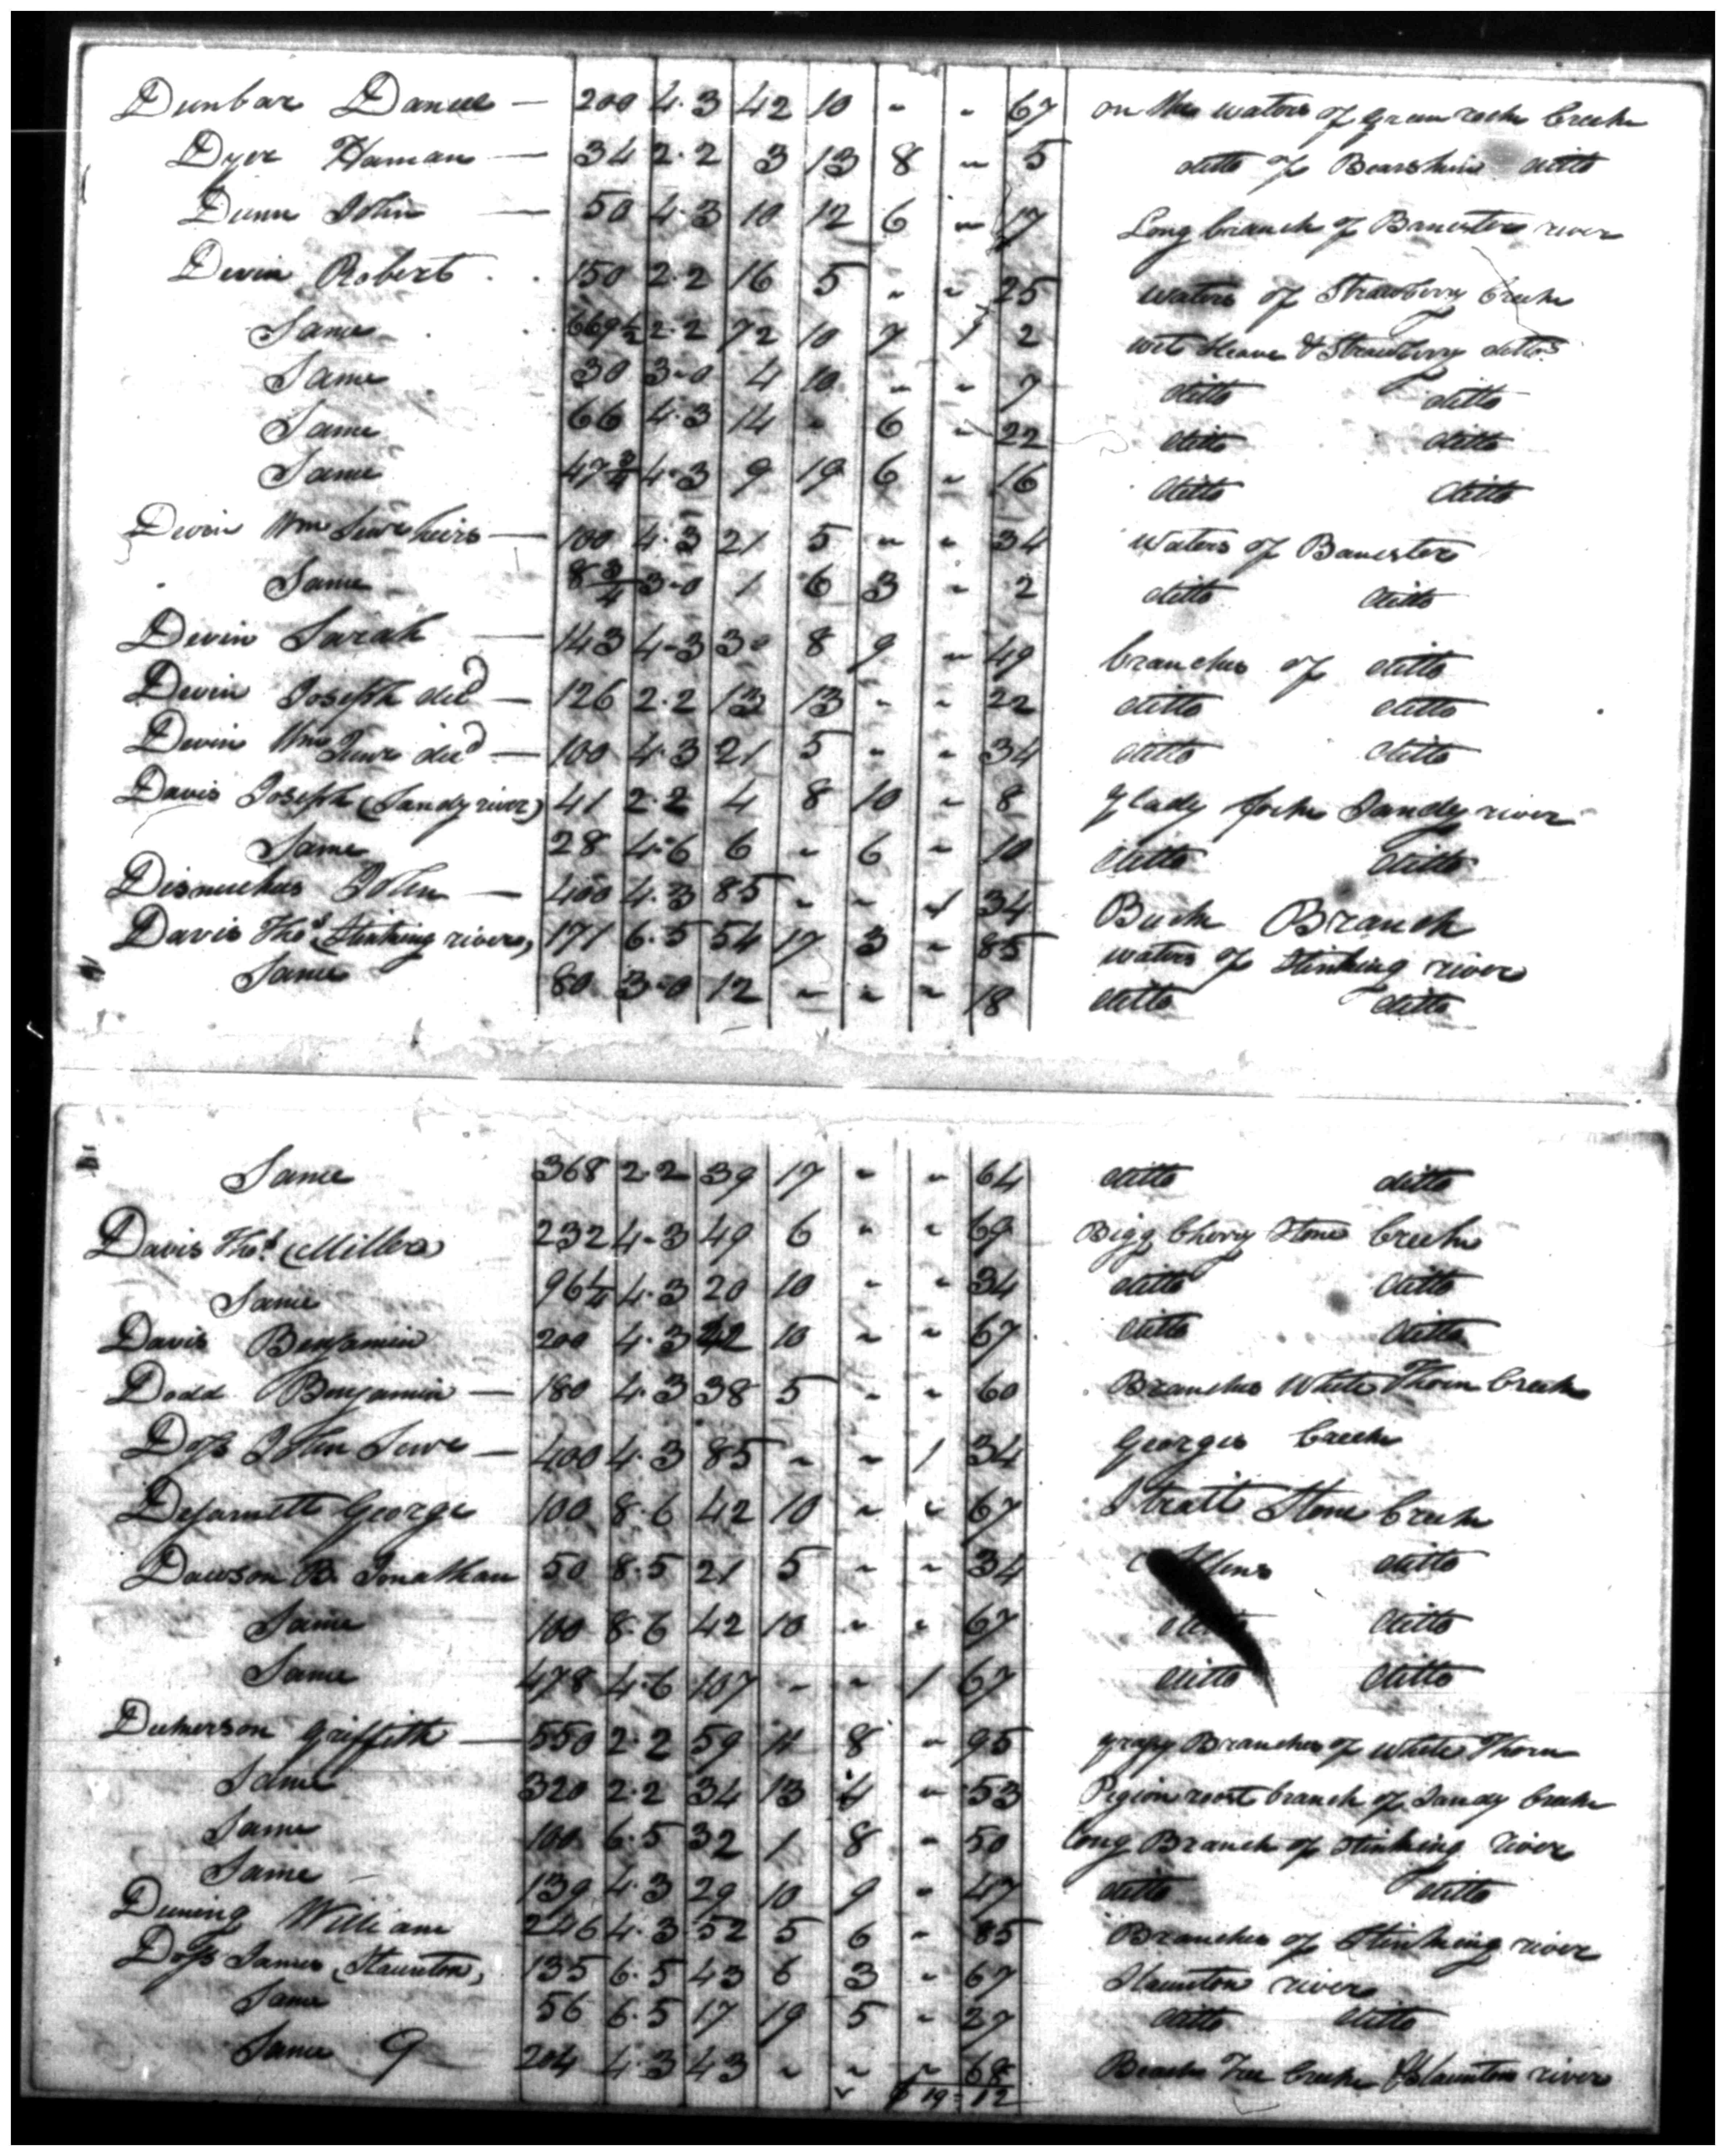 Dunbar Daniel — 200 4.3 42 10 - - 67 on the waters of Green rock Creek
Dyer Haman — 34 2.2 3 13 8 - 5 ditto of Bearskin ditto
Dunn John — 50 4.3 10 12 6 - 17 Long branch of Banister river
Devin Robert 150 2.2 16 5 - - 25 waters of Strawberry Creek
Same 669½ 2.2 72 10 7 1 2 wet sleave & Strawberry dittos
Same 30 3-0 4 10 - - 7 ditto ditto
Same 66 4.3 14 - 6 - 22 ditto ditto
Same 47¾ 4.3 9 19 6 - 16 ditto ditto
Devin Wm Senr heirs — 100 4.3 21 5 - - 34 Waters of Banister
Same 8¾ 3-0 1 6 3 - 2 ditto ditto
Devin Sarah — 143 4-3 30 8 9 - 49 branches of ditto
Devin Joseph decd — 126 2.2 13 13 - - 22 ditto ditto
Devin Wm Junr decd — 100 4.3 21 5 - - 34 ditto ditto
Davis Joseph (Sandy river) 41 2.2 4 8 10 - 8 glady fork Sandy river
Same 28 4-6 6 - 6 - 10 ditto ditto
Dismukes John — 400 4.3 85 - - 1 34 Buck Branch
Davis Thos (Stinking river) 171 6.5 54 17 3 - 85 waters of Stinking river
Same 80 3-0 12 - - - 18 ditto ditto
Same 368 2.2 39 17 - - 64 ditto ditto
Davis Thos. (Miller) 232 4-3 49 6 - - 69 Bigg Cherry Stone Creek
Same 96¼ 4.3 20 10 - - 34 ditto ditto
Davis Benjamin 200 4.3 42 10 - - 67 ditto ditto
Dodd Benjamin — 180 4.3 38 5 - - 60 Branches White Thorn Creek
Doss John Senr — 400 4.3 85 - - 1 34 Georges Creek
Dejarnett George 100 8.6 42 10 - - 67 Straitt Stone Creek
Dawson B. Jonathan 50 8.5 21 5 - - 34 ditto
Same 100 8.6 42 10 - - 67 ditto
Same 478 4.6 107 - - 1 67 ditto ditto
Dickerson Griffith — 550 2.2 59 11 8 - 95 Branches of White Thorn
Same 320 2.2 34 13 4 - 53 Pigion roost branch of Sandy Creek
Same 100 6.5 32 1 8 - 50 Long Branch of Stinking river
Same 139 4.3 29 10 9 - 47 ditto ditto
William 246 4.3 52 5 6 - 85 Branches of Stinking river
Doss James (Staunton) 135 6.5 43 6 3 - 67 Staunton river
Same 56 6.5 17 19 5 - 27 ditto ditto
Same 9 204 4.3 43 - - - 68 Tree Creek Staunton river
$ 19=12